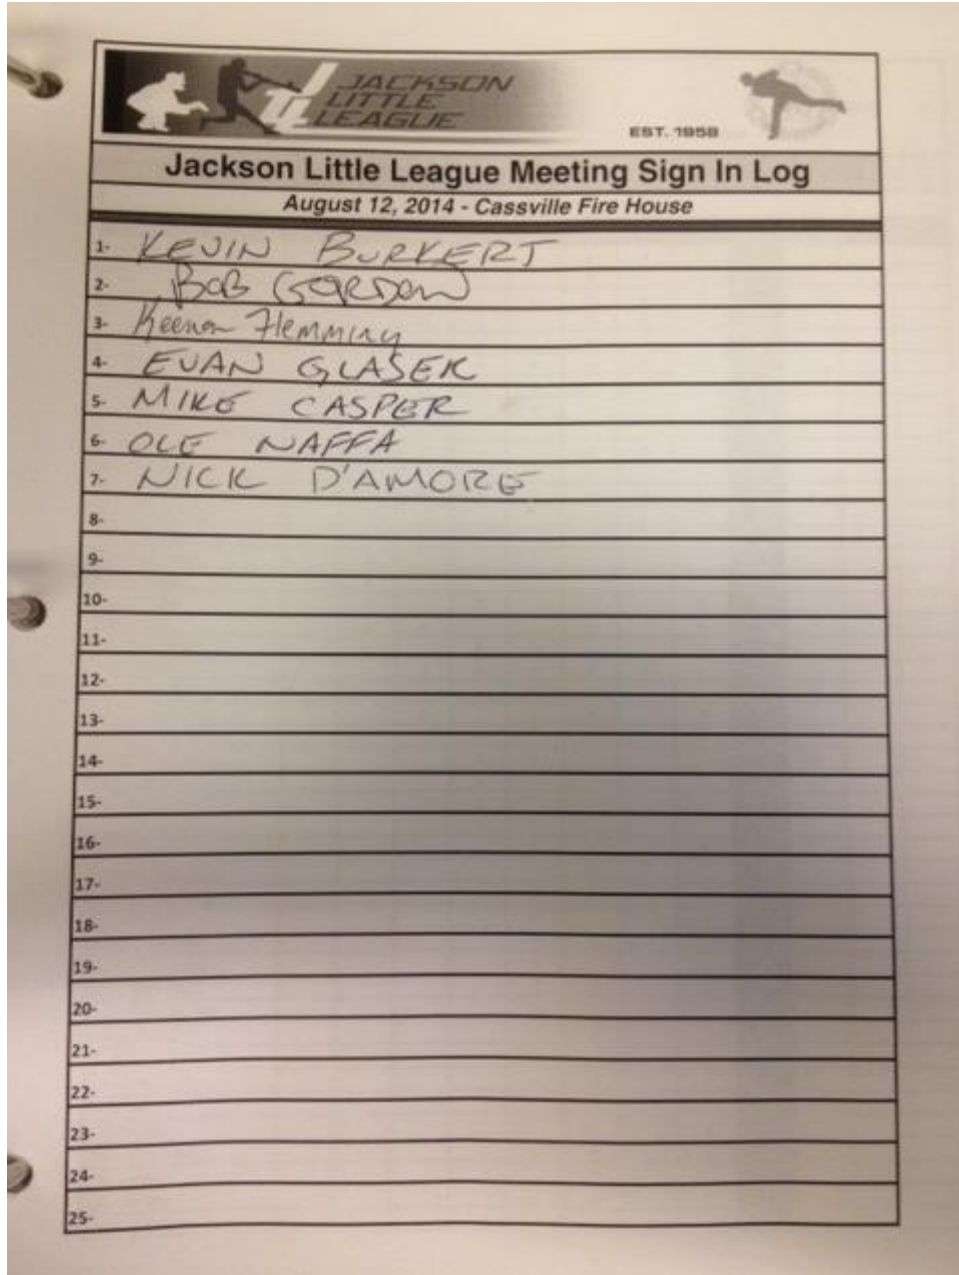 JACKSON
LITTLE
LEAGUE
EST. 1958
Jackson Little League Meeting Sign In Log
August 12, 2014 - Cassville Fire House
1- KEVIN BURKERT
2- BOB GORDON
3- Keenan Flemming
4- EVAN GLASEK
5- MIKE CASPER
6- OLE NAFFA
7- NICK D'AMORE
8-
9-
10-
11-
12-
13-
14-
15-
16-
17-
18-
19-
20-
21-
22-
23-
24-
25-